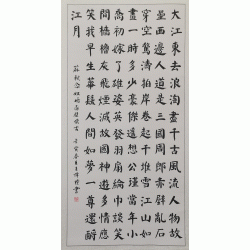 大江東去浪淘盡千古風流人物故
壘西邊人道是三國周郎赤壁亂石
穿空驚濤拍岸卷起千堆雪江山如
畫一時多少豪傑遙想公瑾當年小
喬初嫁了雄姿英發羽扇綸巾談笑
間檣櫓灰飛煙滅故國神遊多情應
笑我早生華髮人間如夢一尊還酹
江月
蘇軾念奴嬌赤壁懷古